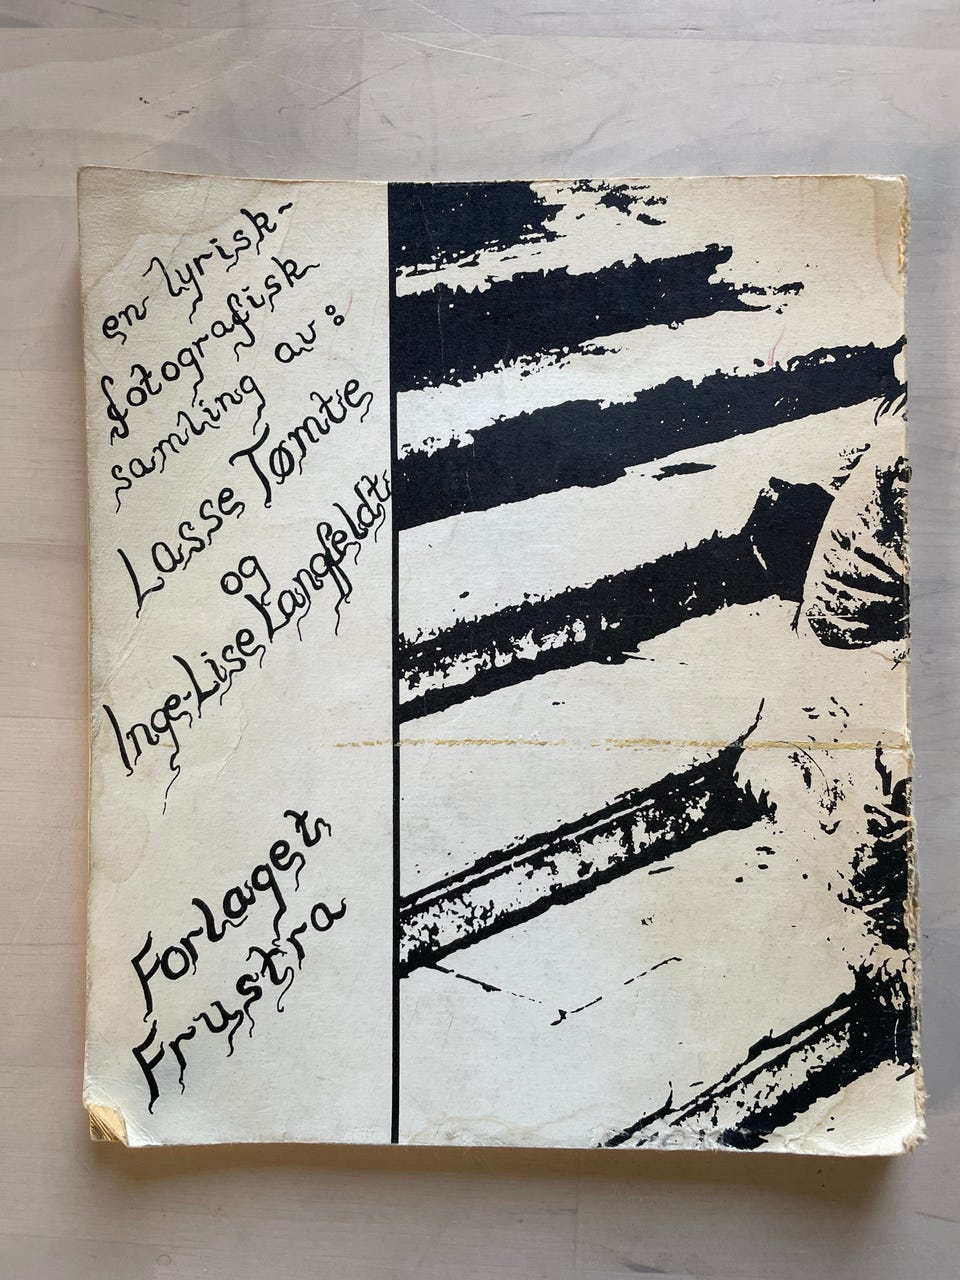 en lyrisk-
fotografisk
samling av:
Lasse Tømte
og
Inge-Lise Langfeldt
Forlaget
Frustra